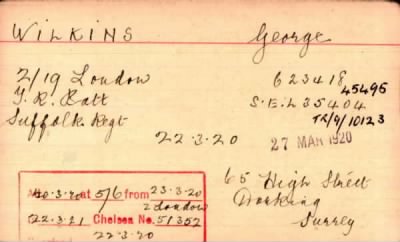 WILKINS George
2/19 London 623418
T. R. Batt 45495
S.E.L 35404
Suffolk Regt TR/9/10123
22.3.20 27 MAR 1920
65 High Street
Dorking
Surrey
20.3.20 at 5/6 from 23.3.20
2 London
22.3.21 Chelsea No. 51352
22.3.20